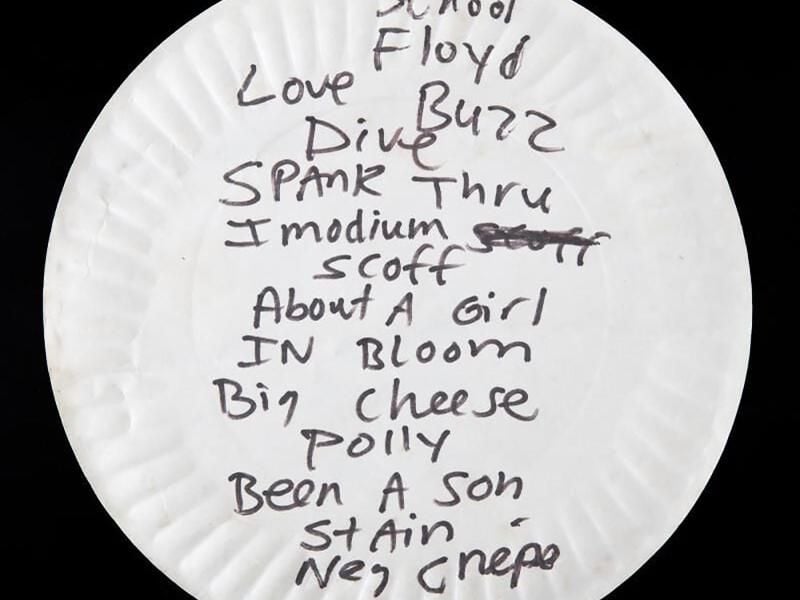 School
Floyd
Love Buzz
Dive
SPAnk Thru
Imodium
scoff
About A Girl
IN Bloom
Big cheese
Polly
Been A Son
StAin
Neg Creep